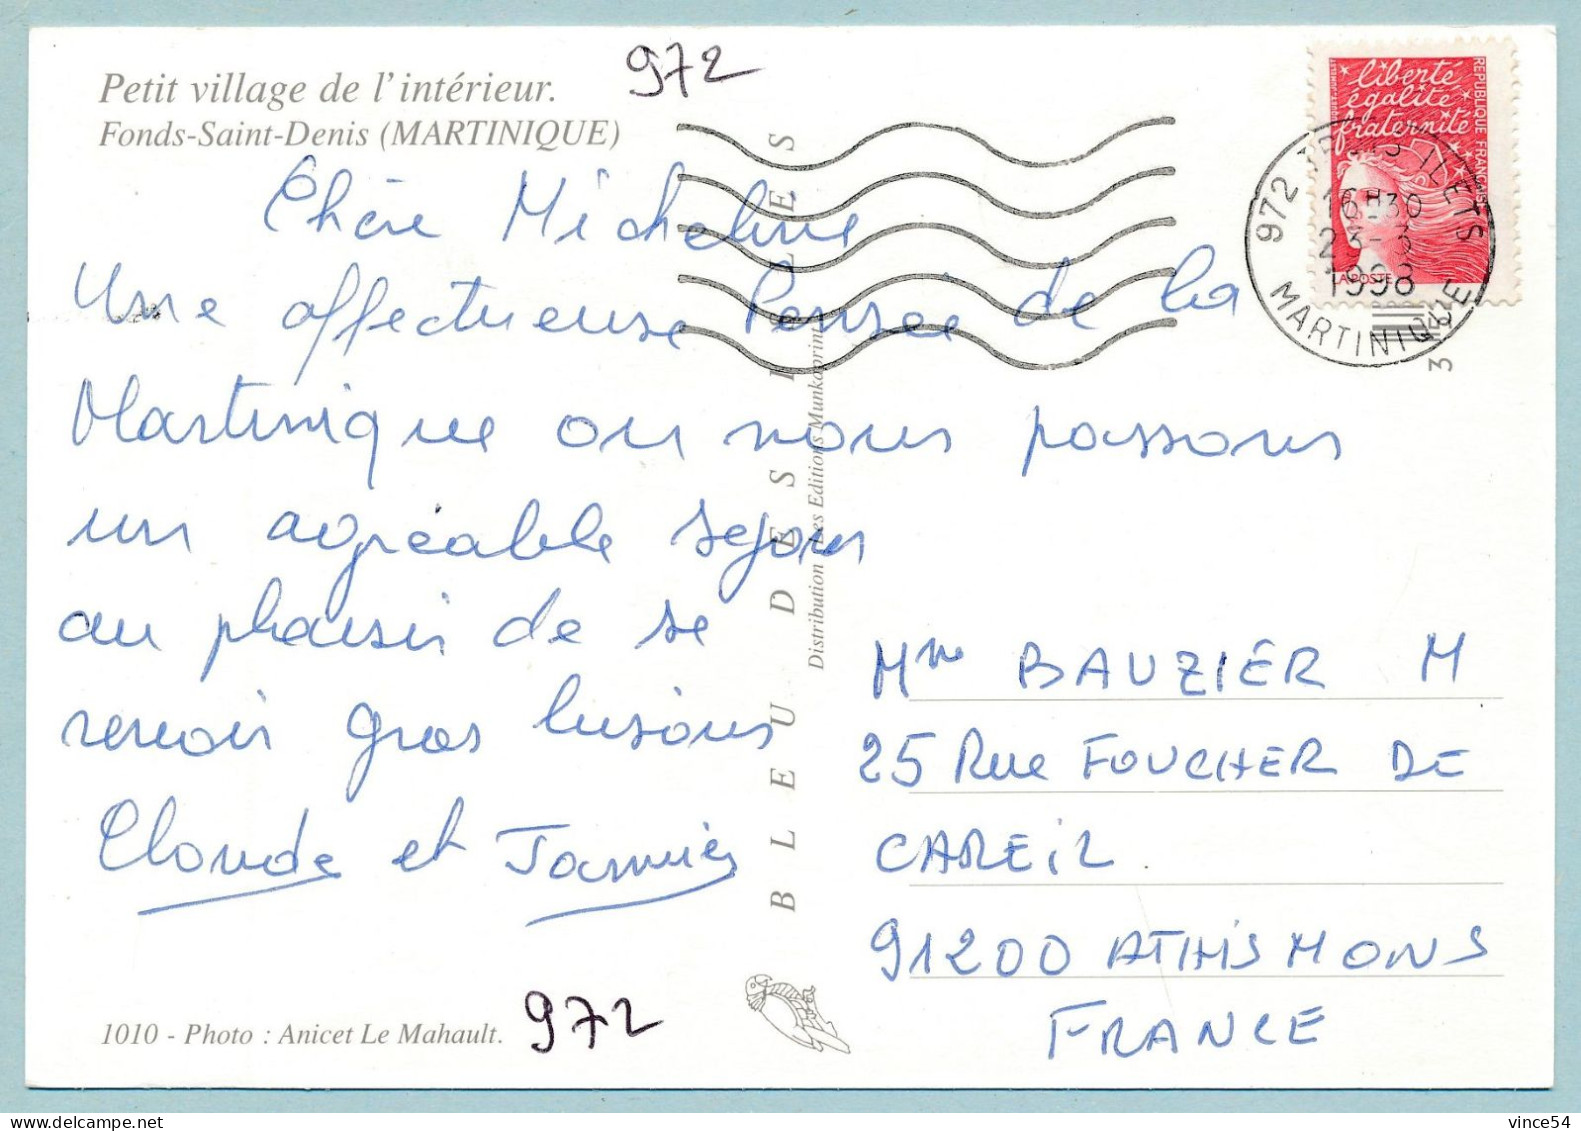 Petit village de l'intérieur.
Fonds-Saint-Denis (MARTINIQUE)
972
Chère Micheline
Une affectueuse Pensée de la
Martinique ou nous passons
un agréable sejour
au plaisir de se
revoir gros bisous
Claude et
972
1010 - Photo : Anicet Le Mahault.
BLEU DES ILES
Distribution Les Editions Munkaprint
liberté
égalité
fraternité
REPUBLIQUE FRANÇAISE
LA POSTE
972 ILETS
16H30
23-3
1998
MARTINIQUE
3
Mme BAUZIER M
25 Rue FOUCHER DE
CAREIL.
91200 ATHIS MONS
FRANCE
delcampe.net
vince54